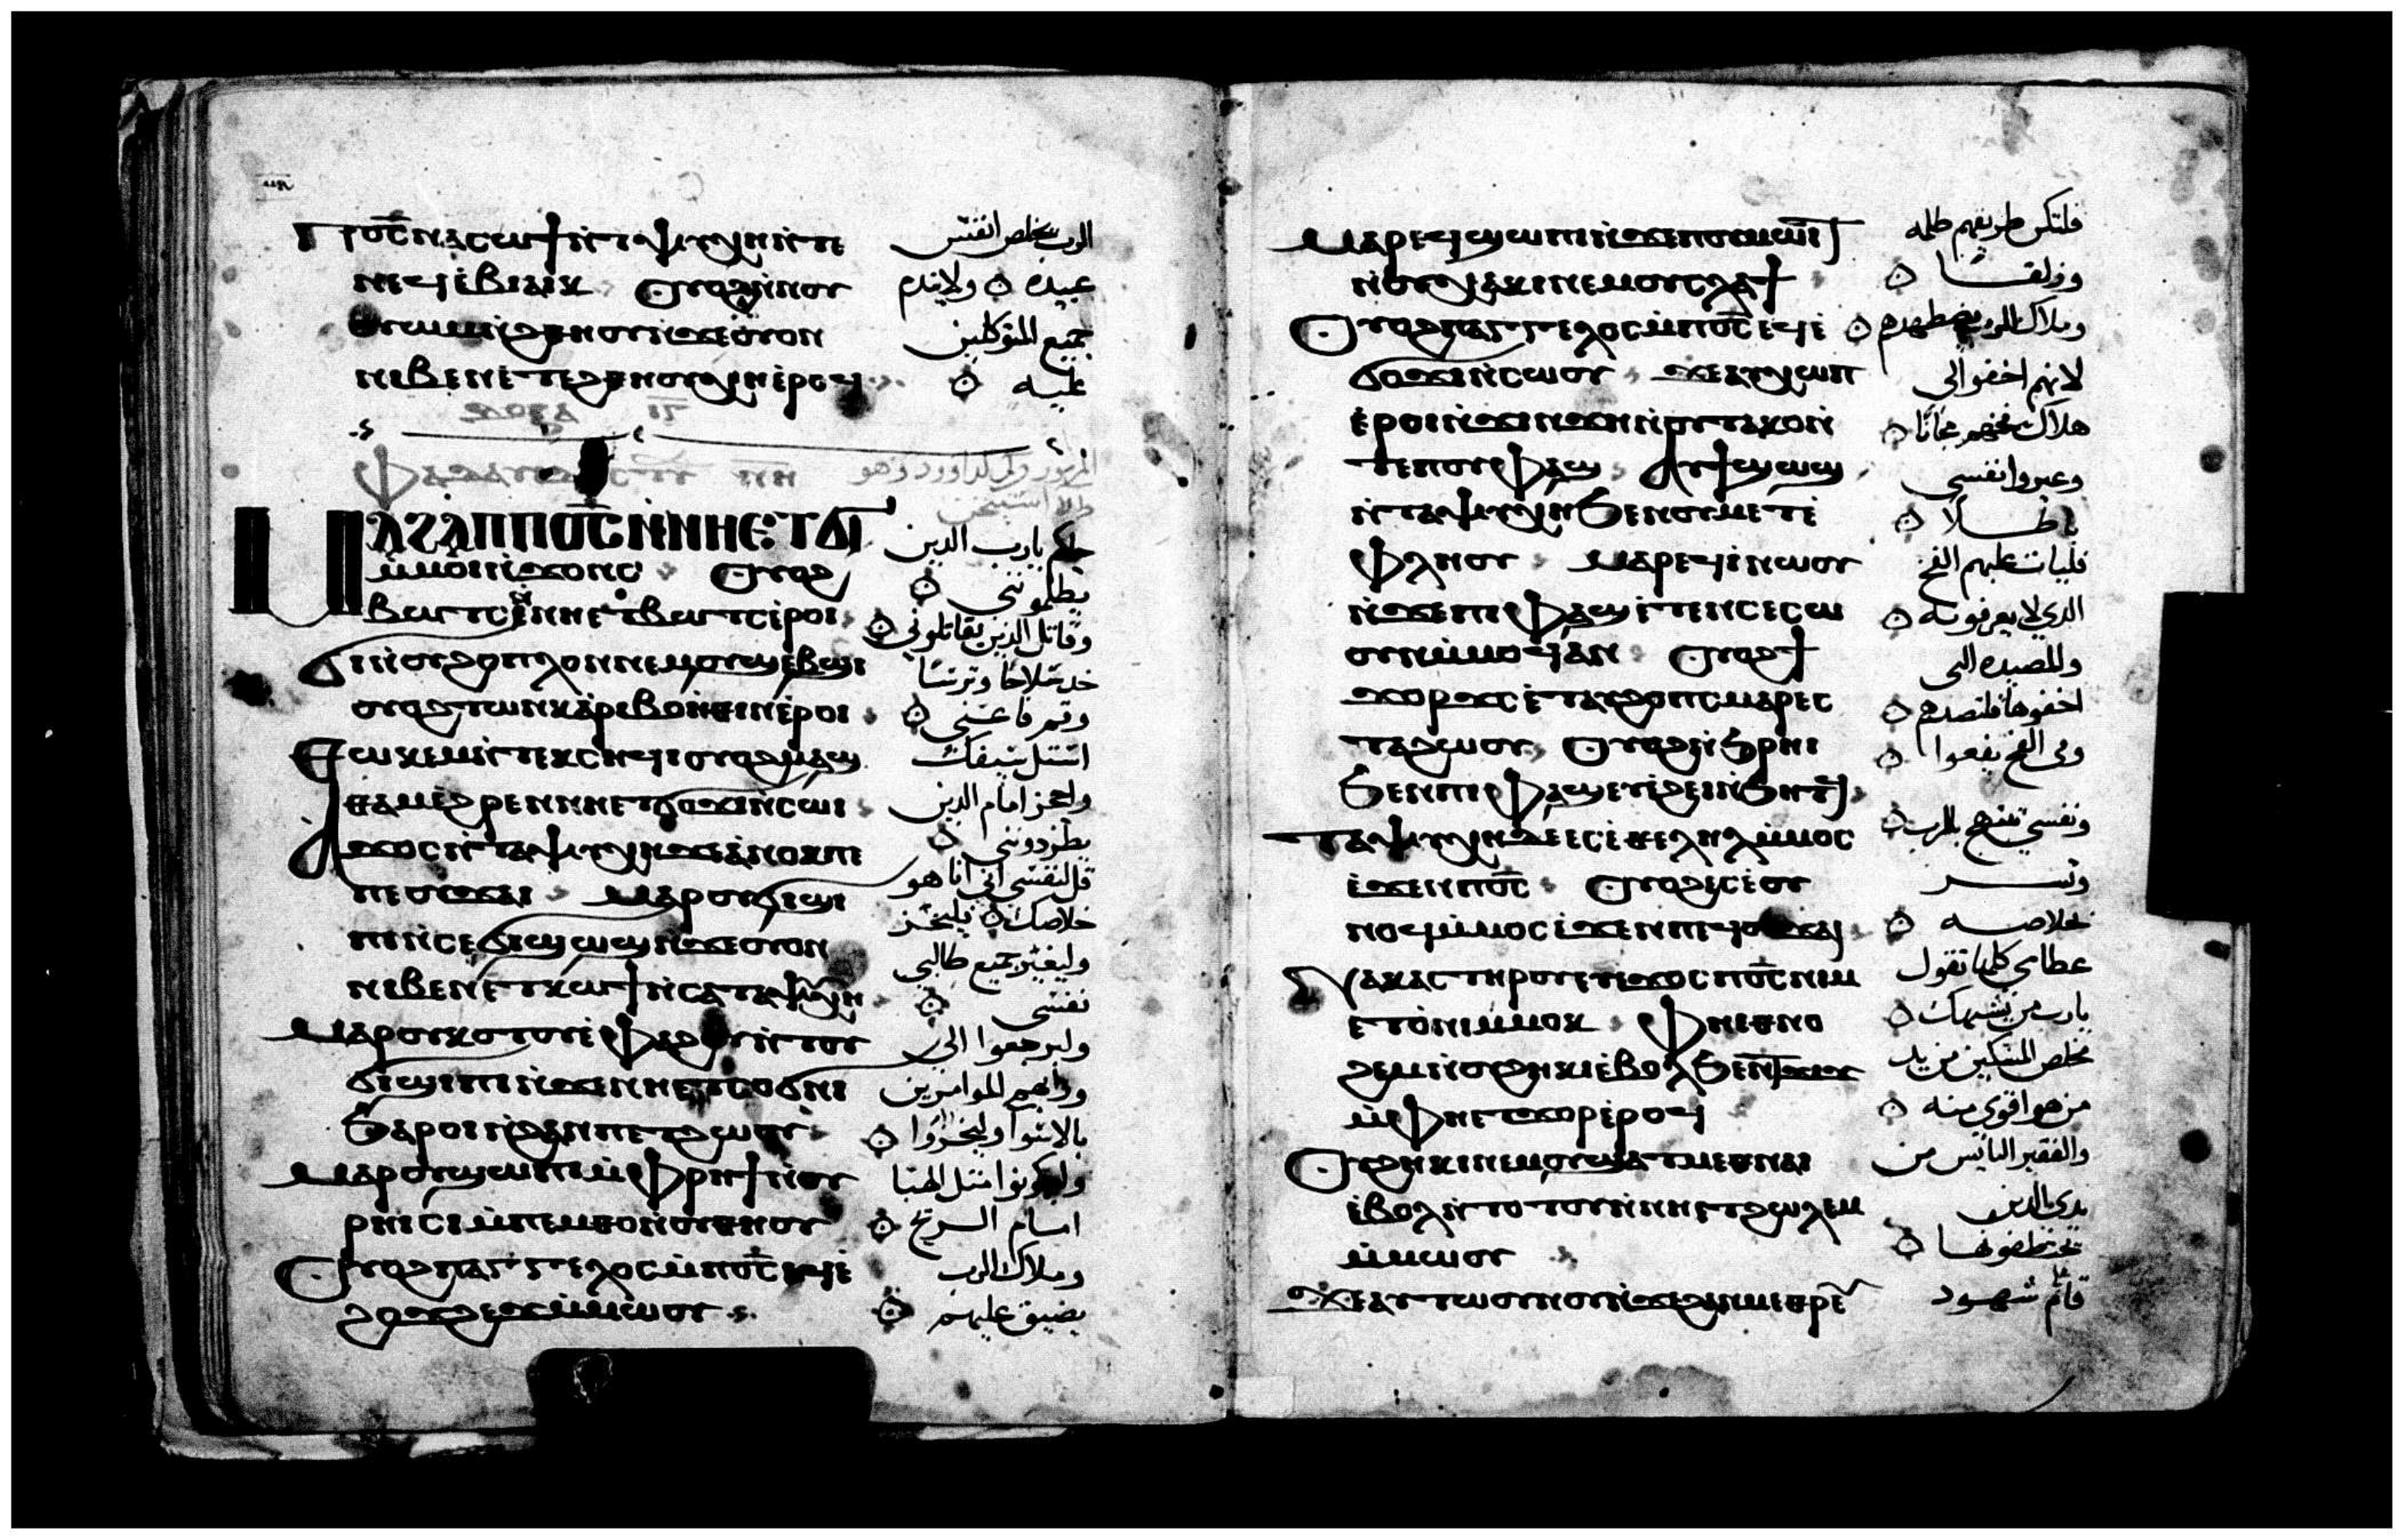 Ⲡⲟ̅ⲥ̅ ⲛⲁⲥⲱϯ ⲛ̀ⲧⲯⲩⲭⲏ ⲛ̀ⲧⲉ
ⲛⲉϥⲉ̀ⲃⲓⲁⲓⲕ ⲟⲩⲟϩ ⲛ̀ⲛⲟⲩ
ⲟⲩⲱⲙ ⲛ̀ϩⲑⲏⲟⲩ ⲛ̀ϫⲉⲟⲩⲟⲛ
ⲛⲓⲃⲉⲛ ⲉ̀ⲧⲉⲣϩⲉⲗⲡⲓⲥ ⲉ̀ⲣⲟϥ
ⲇⲟⲝⲁ ⲓⲥ
Ⲙⲁϩⲁⲡ ⲡⲟ̅ⲥ̅ ⲛ̀ⲛⲏⲉⲧϭⲓ
ⲙ̀ⲙⲟⲓ ⲛ̀ϫⲟⲛⲥ ⲟⲩⲟϩ
ⲃⲱⲧⲥ ⲉ̀ⲛⲛⲏⲉⲧⲃⲱⲧⲥ ⲉ̀ⲣⲟⲓ
ϭⲓ ⲛ̀ⲟⲩϩⲟⲡⲗⲟⲛ ⲛⲉⲙⲟⲩϣⲉⲃϣⲓ
ⲟⲩⲟϩ ⲧⲱⲛⲕ ⲁⲣⲓⲃⲟⲏⲑⲓⲛ ⲉ̀ⲣⲟⲓ
Ⲑⲱⲕⲉⲙ ⲛ̀ⲧⲉⲕⲥⲏϥⲓ ⲟⲩⲟϩ ⲙⲁϣ
ⲑⲁⲙ ⲉ̀ϩⲣⲉⲛ ⲛⲏⲉⲧϭⲟϫⲓ ⲛ̀ⲥⲱⲓ
Ⲁϫⲟⲥ ⲛ̀ⲧⲁⲯⲩⲭⲏ ϫⲉ ⲁⲛⲟⲕ ⲡⲉ
ⲡⲉⲟⲩϫⲁⲓ ⲙⲁⲣⲟⲩϭⲓϣⲓ
ⲡⲓ ⲛ̀ⲥⲉϭⲓϣⲱϣ ⲛ̀ϫⲉⲟⲩⲟⲛ
ⲛⲓⲃⲉⲛ ⲉ̀ⲧⲕⲱϯ ⲛ̀ⲥⲁ ⲧⲁⲯⲩⲭⲏ
Ⲙⲁⲣⲟⲩⲕⲟⲧⲟⲩ ⲉ̀ⲫⲁϩⲟⲩ ⲛ̀ⲧⲟⲩ
ϭⲓϣⲓⲡⲓ ⲛ̀ϫⲉ ⲛⲏⲉⲧⲥⲟϭⲛⲓ
ϧⲁⲣⲟⲓ ⲛ̀ϩⲁⲛⲡⲉⲧϩⲱⲟⲩ
Ⲙⲁⲣⲟⲩϣⲱⲡⲓ ⲙ̀ⲫⲣⲏϯ ⲛ̀ⲟⲩ
ⲣⲏⲓⲥⲓ ⲙ̀ⲡⲉⲙⲑⲟ ⲛ̀ⲟⲩⲑⲏⲟⲩ
Ⲟⲩⲟϩ ⲡⲁⲅⲅⲉⲗⲟⲥ ⲙ̀ⲡⲟ̅ⲥ̅ ⲉϥⲉ̀
ϩⲟϫϩⲉϫ ⲙ̀ⲙⲱⲟⲩ
الرب يخلص انفس
عبيده ولا يندم
جميع المتوكلين
عليه
المزمور ... لداوود وهو
حاكم يارب الدين
يظلمونني
وقاتل الذين يقاتلوني
خد سلاحا وترسا
وقم فاعني
استل سيفك
واحجز امام الدين
يطردونني
قل لنفسي اني انا هو
خلاصك فليخز
وليفتر جميع طالبي
نفسي
وليرجعوا الى
وراهم الموامرين
بالاسوا وليخزوا
وليكونوا متل الهبا
امام الريح
وملاك الرب
يضيق عليهم
Ⲙⲁⲣⲉϥϣⲱⲡⲓ ⲛ̀ϫⲉⲡⲟⲩⲙⲱⲓⲧ
ⲛ̀ⲟⲩⲭⲁⲕⲓ ⲛⲉⲙⲟⲩⲥⲗⲁϯ
Ⲟⲩⲟϩ ⲡⲁⲅⲅⲉⲗⲟⲥ ⲙ̀ⲡⲟ̅ⲥ̅ ⲉϥⲉ̀
ϭⲟϫⲓ ⲛ̀ⲥⲱⲟⲩ ϫⲉ ⲁⲩⲭⲱⲡ
ⲉ̀ⲣⲟⲓ ⲛ̀ϫⲓⲛϫⲏ ⲛ̀ⲟⲩⲧⲁⲕⲟ ⲛ̀
ⲧⲉⲡⲟⲩⲫⲁϣ Ⲁⲩϯϣⲱϣ
ⲛ̀ⲧⲁⲯⲩⲭⲏ ϧⲉⲛⲟⲩⲙⲉⲧⲉ̀
ⲫⲗⲏⲟⲩ ⲙⲁⲣⲉϥⲓ̀ ⲛⲱⲟⲩ
ⲛ̀ϫⲉ ⲡⲓⲫⲁϣ ⲉ̀ⲧⲉⲛⲥⲉⲥⲱ
ⲟⲩⲛ ⲙ̀ⲙⲟϥ ⲁⲛ ⲟⲩⲟϩ ϯ
ϫⲟⲣϫⲥ ⲉ̀ⲧⲁⲩϩⲟⲡⲥ ⲙⲁⲣⲉⲥ
ⲧⲁϩⲱⲟⲩ ⲟⲩⲟϩ ⲛ̀ϧⲣⲏⲓ
ϧⲉⲛ ⲡⲓⲫⲁϣ ⲉⲩⲉ̀ϩⲉⲓ ⲛ̀ϧⲏⲧϥ
Ⲧⲁⲯⲩⲭⲏ ⲇⲉ ⲉⲥⲉ̀ⲑⲉⲗⲏⲗ ⲙ̀ⲙⲟⲥ
ⲉ̀ϫⲉⲛ ⲡⲟ̅ⲥ̅ ⲟⲩⲟϩ ⲉⲥⲉ̀ⲟⲩ
ⲛⲟϥ ⲙ̀ⲙⲟⲥ ⲉ̀ϫⲉⲛ ⲡⲉϥⲟⲩϫⲁⲓ
Ⲛⲁⲕⲁⲥ ⲧⲏⲣⲟⲩ ⲉⲩⲉ̀ϫⲟⲥ ⲡⲟ̅ⲥ̅ ⲛⲓⲙ
ⲉⲧⲟ̀ⲛⲓ ⲙ̀ⲙⲟⲕ ⲫⲏⲉⲑⲛⲟ
ϩⲉⲙ ⲛ̀ⲟⲩϩⲏⲕⲓ ⲉ̀ⲃⲟⲗ ϧⲉⲛ ⲧϫⲓϫ
ⲙ̀ⲫⲏⲉⲧϫⲟⲣ ⲉ̀ⲣⲟϥ
Ⲟⲩϩⲏⲕⲓ ⲛⲉⲙⲟⲩϫⲁⲧⲙⲉⲑⲛⲁⲓ
ⲉ̀ⲃⲟⲗ ⲛ̀ⲧⲟⲧⲟⲩ ⲛ̀ⲛⲏⲉⲧϩⲱⲗⲉⲙ
ⲙ̀ⲙⲱⲟⲩ
Ϫⲉ ⲁⲩⲧⲱⲟⲩⲛⲟⲩ ⲛ̀ϫⲉϩⲁⲛⲙⲉⲑⲣⲉ
فلتكن طريقهم ظلمه
وزلقا
وملاك الرب يضطهدهم
لانهم اخفوا لي
هلاك فخهم مجانا
وعيروا نفسي
باطلا
فليات عليهم الفخ
الدي لا يعرفونه
والمصيده التي
اخفوها فلتصدهم
وفي الفخ يقعوا
ونفسي تبتهج بالرب
وتسر
بخلاصه
عظامي كلها تقول
يارب من يشبهك
مخلص المسكين من يد
من هو اقوى منه
والفقير البائس من
يدي الدين
يختطفونهما
قام شهود